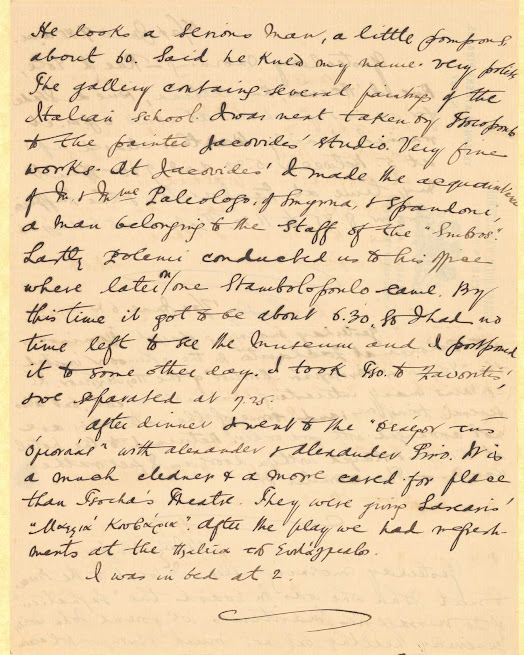 He looks a serious man, a little pompous,
about 60. Said he knew my name. Very polite.
The gallery contains several paintings of the
Italian school. I was next taken by Tsocopoulo
to the painter Jacovides' studio. Very fine
works. At Jacovides' I made the acquaintance
of M. & Mme Paleologo, of Smyrna, & Spandoni,
a man belonging to the staff of the "Embros".
Lastly Polemi conducted us to his office
where later on one Stambolopoulo came. By
this time it got to be about 6.30. So I had no
time left to see the Museum and I postponed
it to some other day. I took Tso. to Zavoritis',
& we separated at 7.25.
After dinner I went to the "Θέατρον τῆς
Ὁμονοίας" with Alexander & Alexander Piro. It is
a much cleaner & a more cared for place
than Tsocha's Theatre. They were giving Lascaris'
"Μαλλιά Κουβάρια". After the play we had refresh-
ments at the
I was in bed at 2.